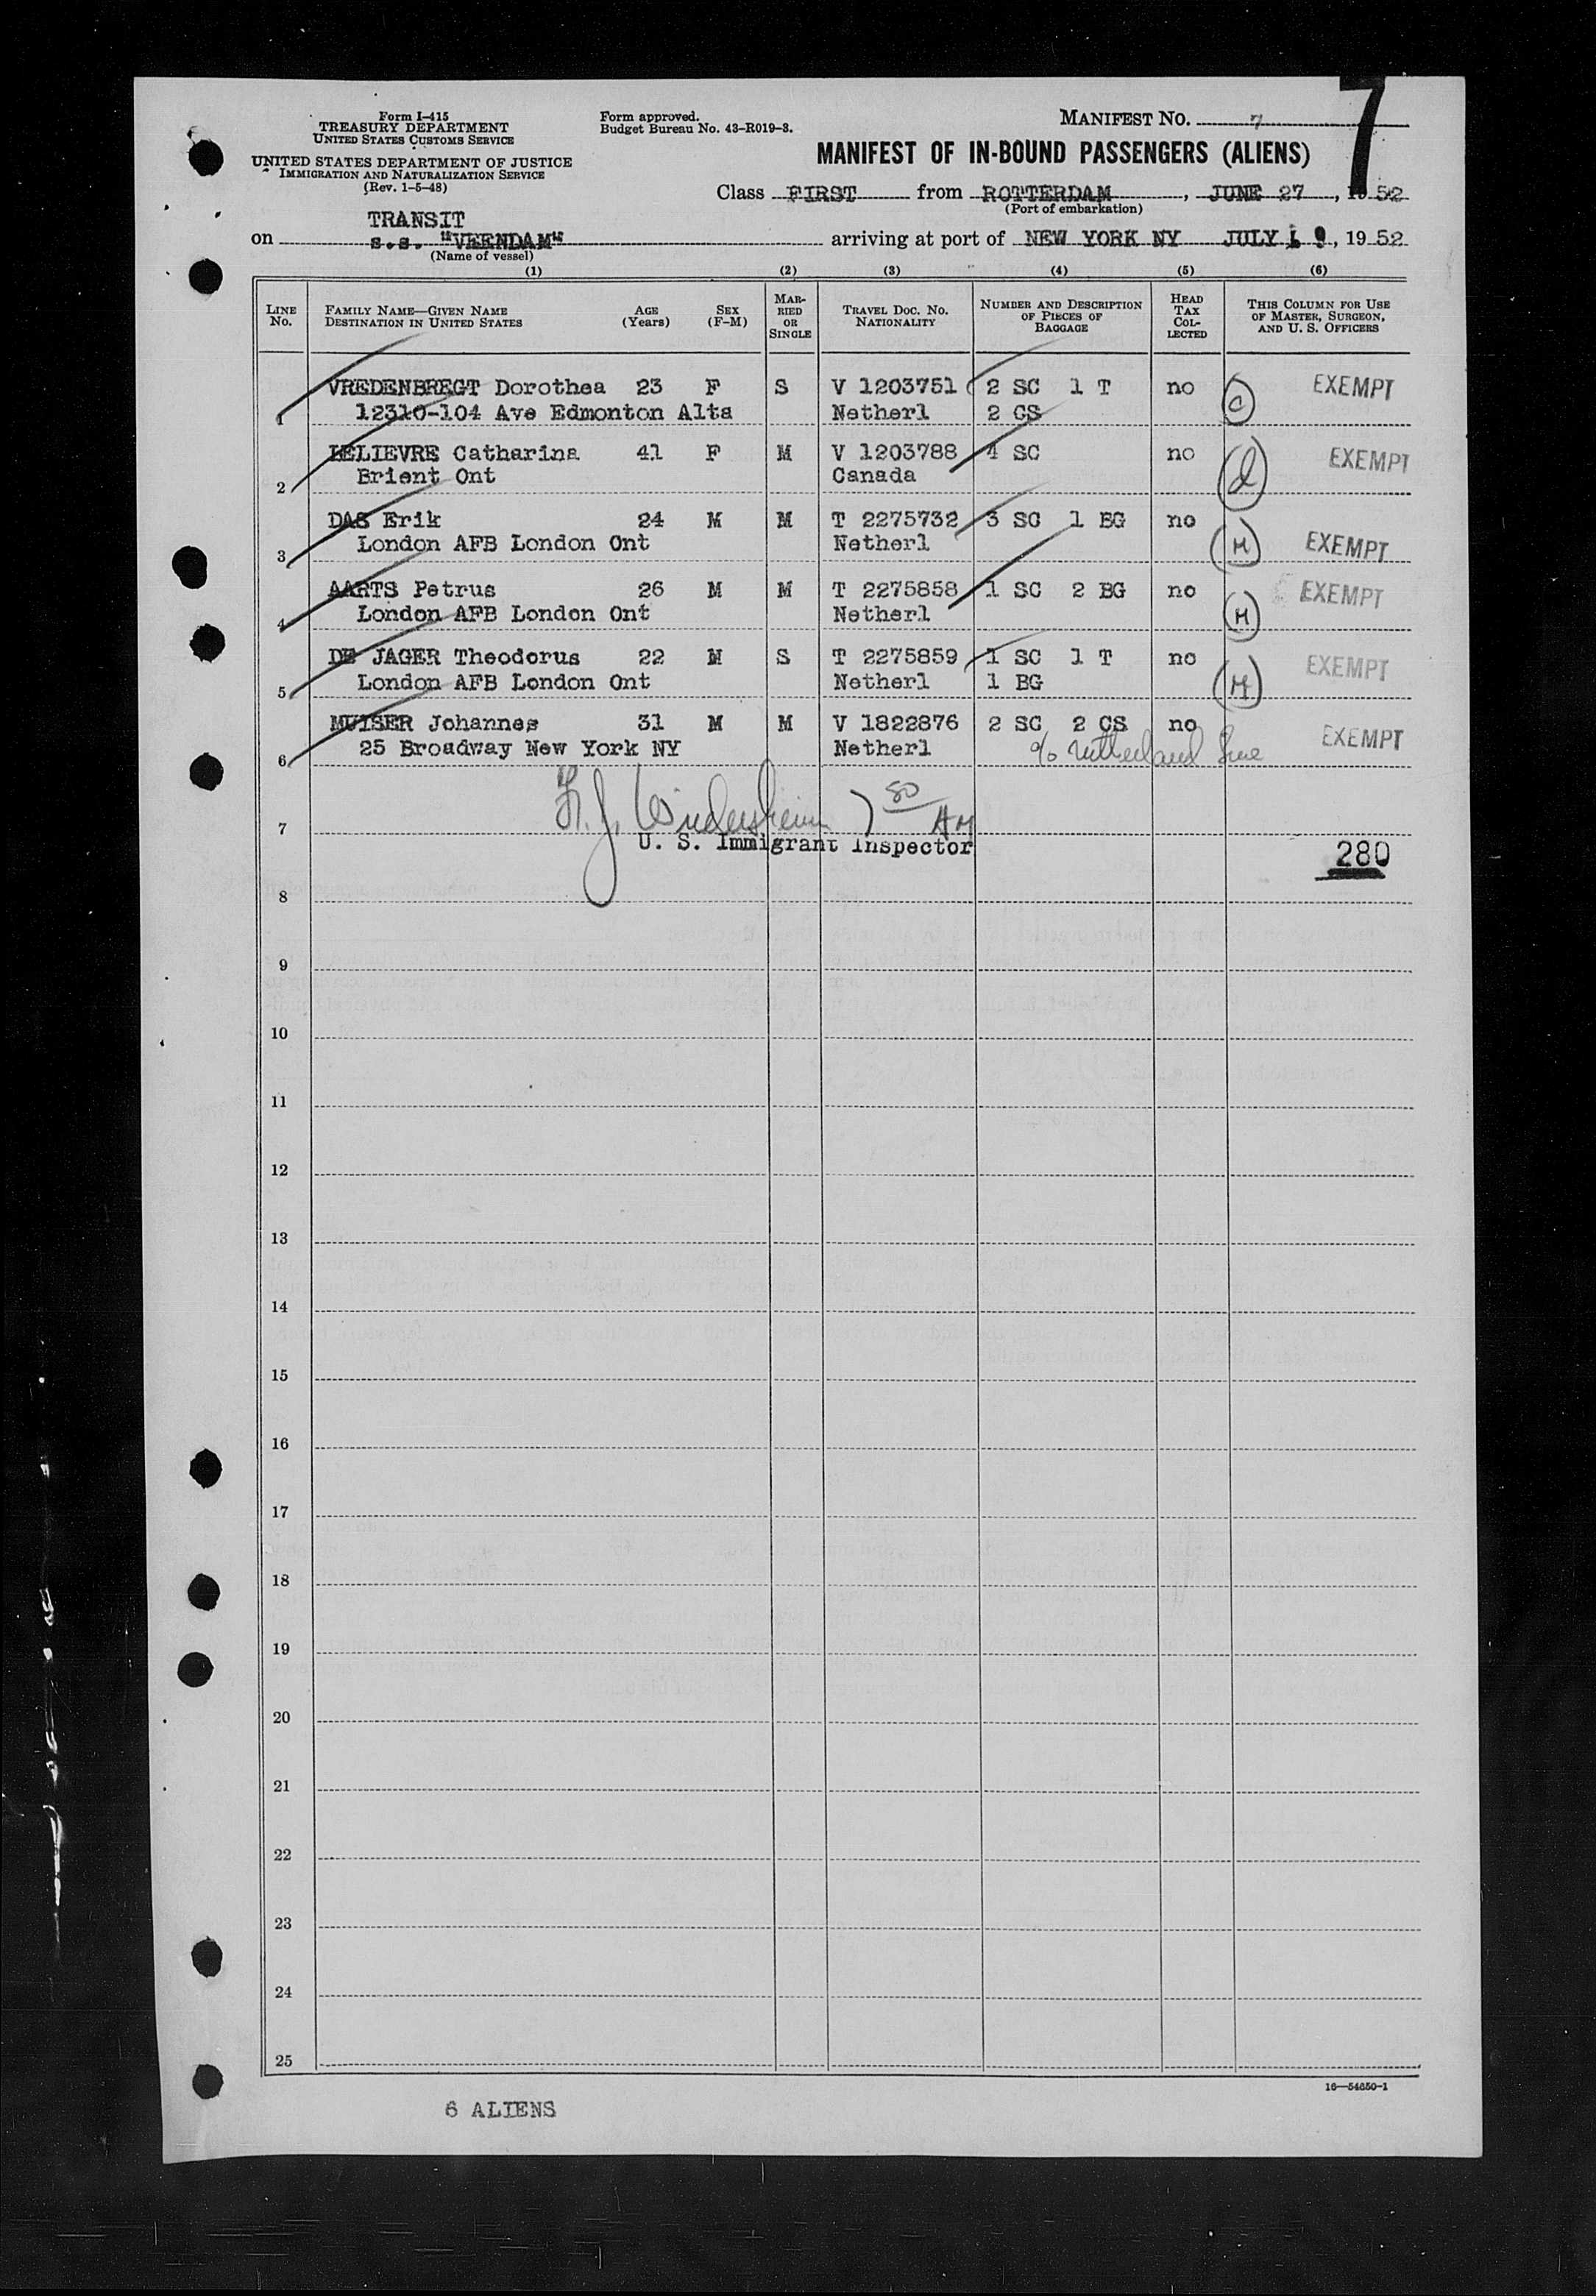 7
Form I-415
TREASURY DEPARTMENT
UNITED STATES CUSTOMS SERVICE
UNITED STATES DEPARTMENT OF JUSTICE
IMMIGRATION AND NATURALIZATION SERVICE
(Rev. 1-5-48)
Form approved.
Budget Bureau No. 43-R019-3.
MANIFEST No. 7
MANIFEST OF IN-BOUND PASSENGERS (ALIENS)
Class FIRST from ROTTERDAM, JUNE 27, 1952
(Port of embarkation)
TRANSIT
on s.s. "VEENDAM" arriving at port of NEW YORK NY JULY 9, 1952
(Name of vessel)
(1) (2) (3) (4) (5) (6)
LINE No. FAMILY NAME—GIVEN NAME DESTINATION IN UNITED STATES AGE (Years) SEX (F-M) MARRIED OR SINGLE TRAVEL DOC. No. NATIONALITY NUMBER AND DESCRIPTION OF PIECES OF BAGGAGE HEAD TAX COLLECTED THIS COLUMN FOR USE OF MASTER, SURGEON, AND U. S. OFFICERS
VREDENBREGT Dorothea 23 F S V 1203751 2 SC 1 T no C EXEMPT
1 12310-104 Ave Edmonton Alta Netherl 2 CS
LELIEVRE Catharina 41 F M V 1203788 4 SC no d EXEMPT
2 Brient Ont Canada
DAS Erik 24 M M T 2275732 3 SC 1 BG no H EXEMPT
3 London AFB London Ont Netherl
AARTS Petrus 26 M M T 2275858 1 SC 2 BG no H EXEMPT
4 London AFB London Ont Netherl
DE JAGER Theodorus 22 M S T 2275859 1 SC 1 T no H EXEMPT
5 London AFB London Ont Netherl 1 BG
MUISER Johannes 31 M M V 1822876 2 SC 2 CS no EXEMPT
6 25 Broadway New York NY Netherl c/o Netherland Line
7 7 50 AM
U. S. Immigrant Inspector
280
8
9
10
11
12
13
14
15
16
17
18
19
20
21
22
23
24
25
16—54650-1
6 ALIENS